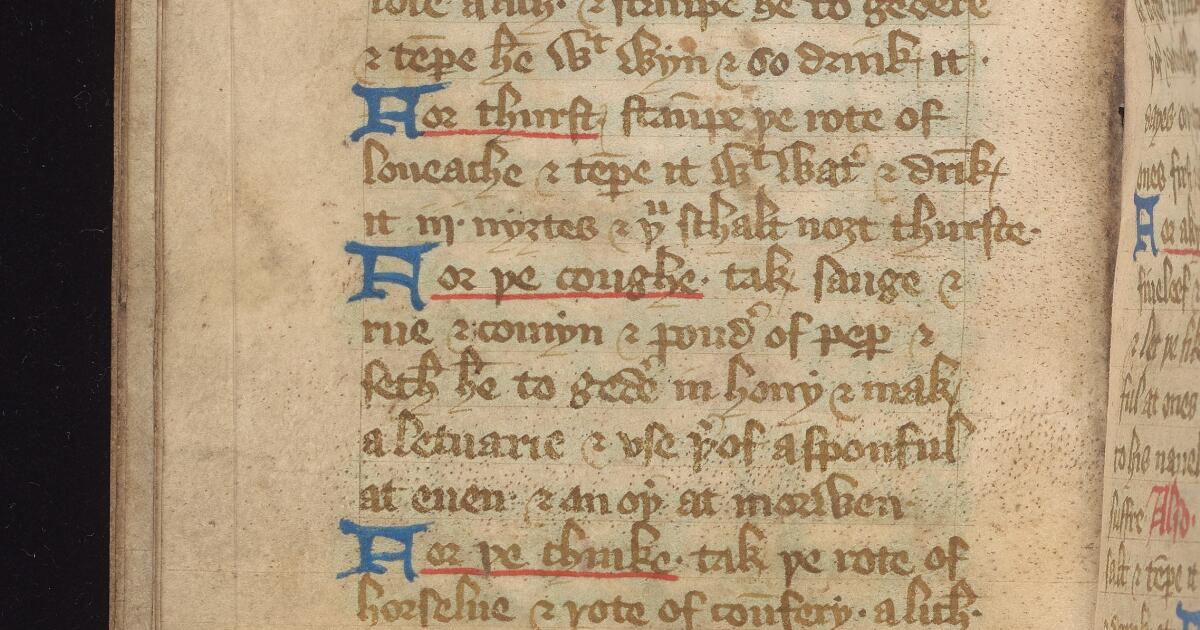 & stampe he to gedere
& tēpe hē wᵗ wyn & so drink it ·
For thurst stāpe ye rote of
loueache & tēpe it wᵗ watʼ & drīk
it iij · nyȝtes & yᵘ schalt noȝt thurste ·
For ye coughe · tak sauge &
rue & comyn & poudʼ of pep &
seth hē to gedʼe in hony & mak
a letuarie & vse yʼof a sponful
at euen · & an oyʼ at morwen
For ye chinke · tak ye rote of
horselne & rote of cōfery · a lich ·
For
ones
fiueleef
& let ye
ful at ones
to his nauel
suffre Also
salt & tēpe it